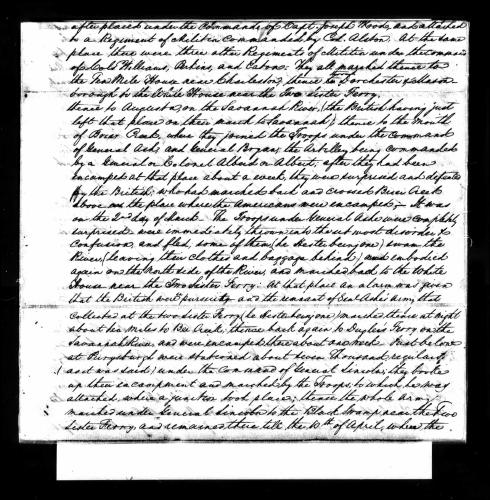 after placed under the Command of Capt. Joseph Woods, and attached
to a Regiment of Militia Commanded by Col. Alston. At the same
place there were three other Regiments of Militia under the command
of Cols Williams, Perkins, and Eaton. They all marched thence to
the Ten Mile House near Charleston, thence to Dorchester & Mason
borough to the White House near the Two Sister Ferry.
thence to Augusta, on the Savannah River, (the British having just
left that place on their march to Savannah,) thence to the Mouth
of Brier Creek, where they joined the Troops under the command
of General Ash, and General Bryan, the Artillery being commanded
by a General or Colonel Albert or Albert, after they had been
encamped at that place about a week they were surprised and defeated
by the British, who had marched back and crossed Brier Creek
above the place where the Americans were encamped; It was
on the 2nd day of March. The Troops under General Ashe were completely
surprised were immediately thrown into the utmost disorder &
confusion, and fled, some of them (he Hester being one) swam the
River (leaving their clothes and baggage behind) and embodied
again on the North side of the River and marched back to the White
House near the Two Sister Ferry: At that place an alarm was given
that the British were pursuing and the remnant of Genl Ashe's Army, that
collected at the two Sister Ferry (he Hester being one) marched thence at night
about six Miles to Bee Creek, thence back again to Dugless Ferry on the
Savannah River, and were encamped there about one week. Just below
at Purysburg were stationed about seven Thousand regulars
(as it was said) under the Command of General Lincoln; they broke
up their encampment and marched by the Troops, to which he was
attached, when a junction took place; thence the whole army
marched under General Lincoln to the Black Swamp near the Two
Sister Ferry, and remained there till the 10th of April, when the